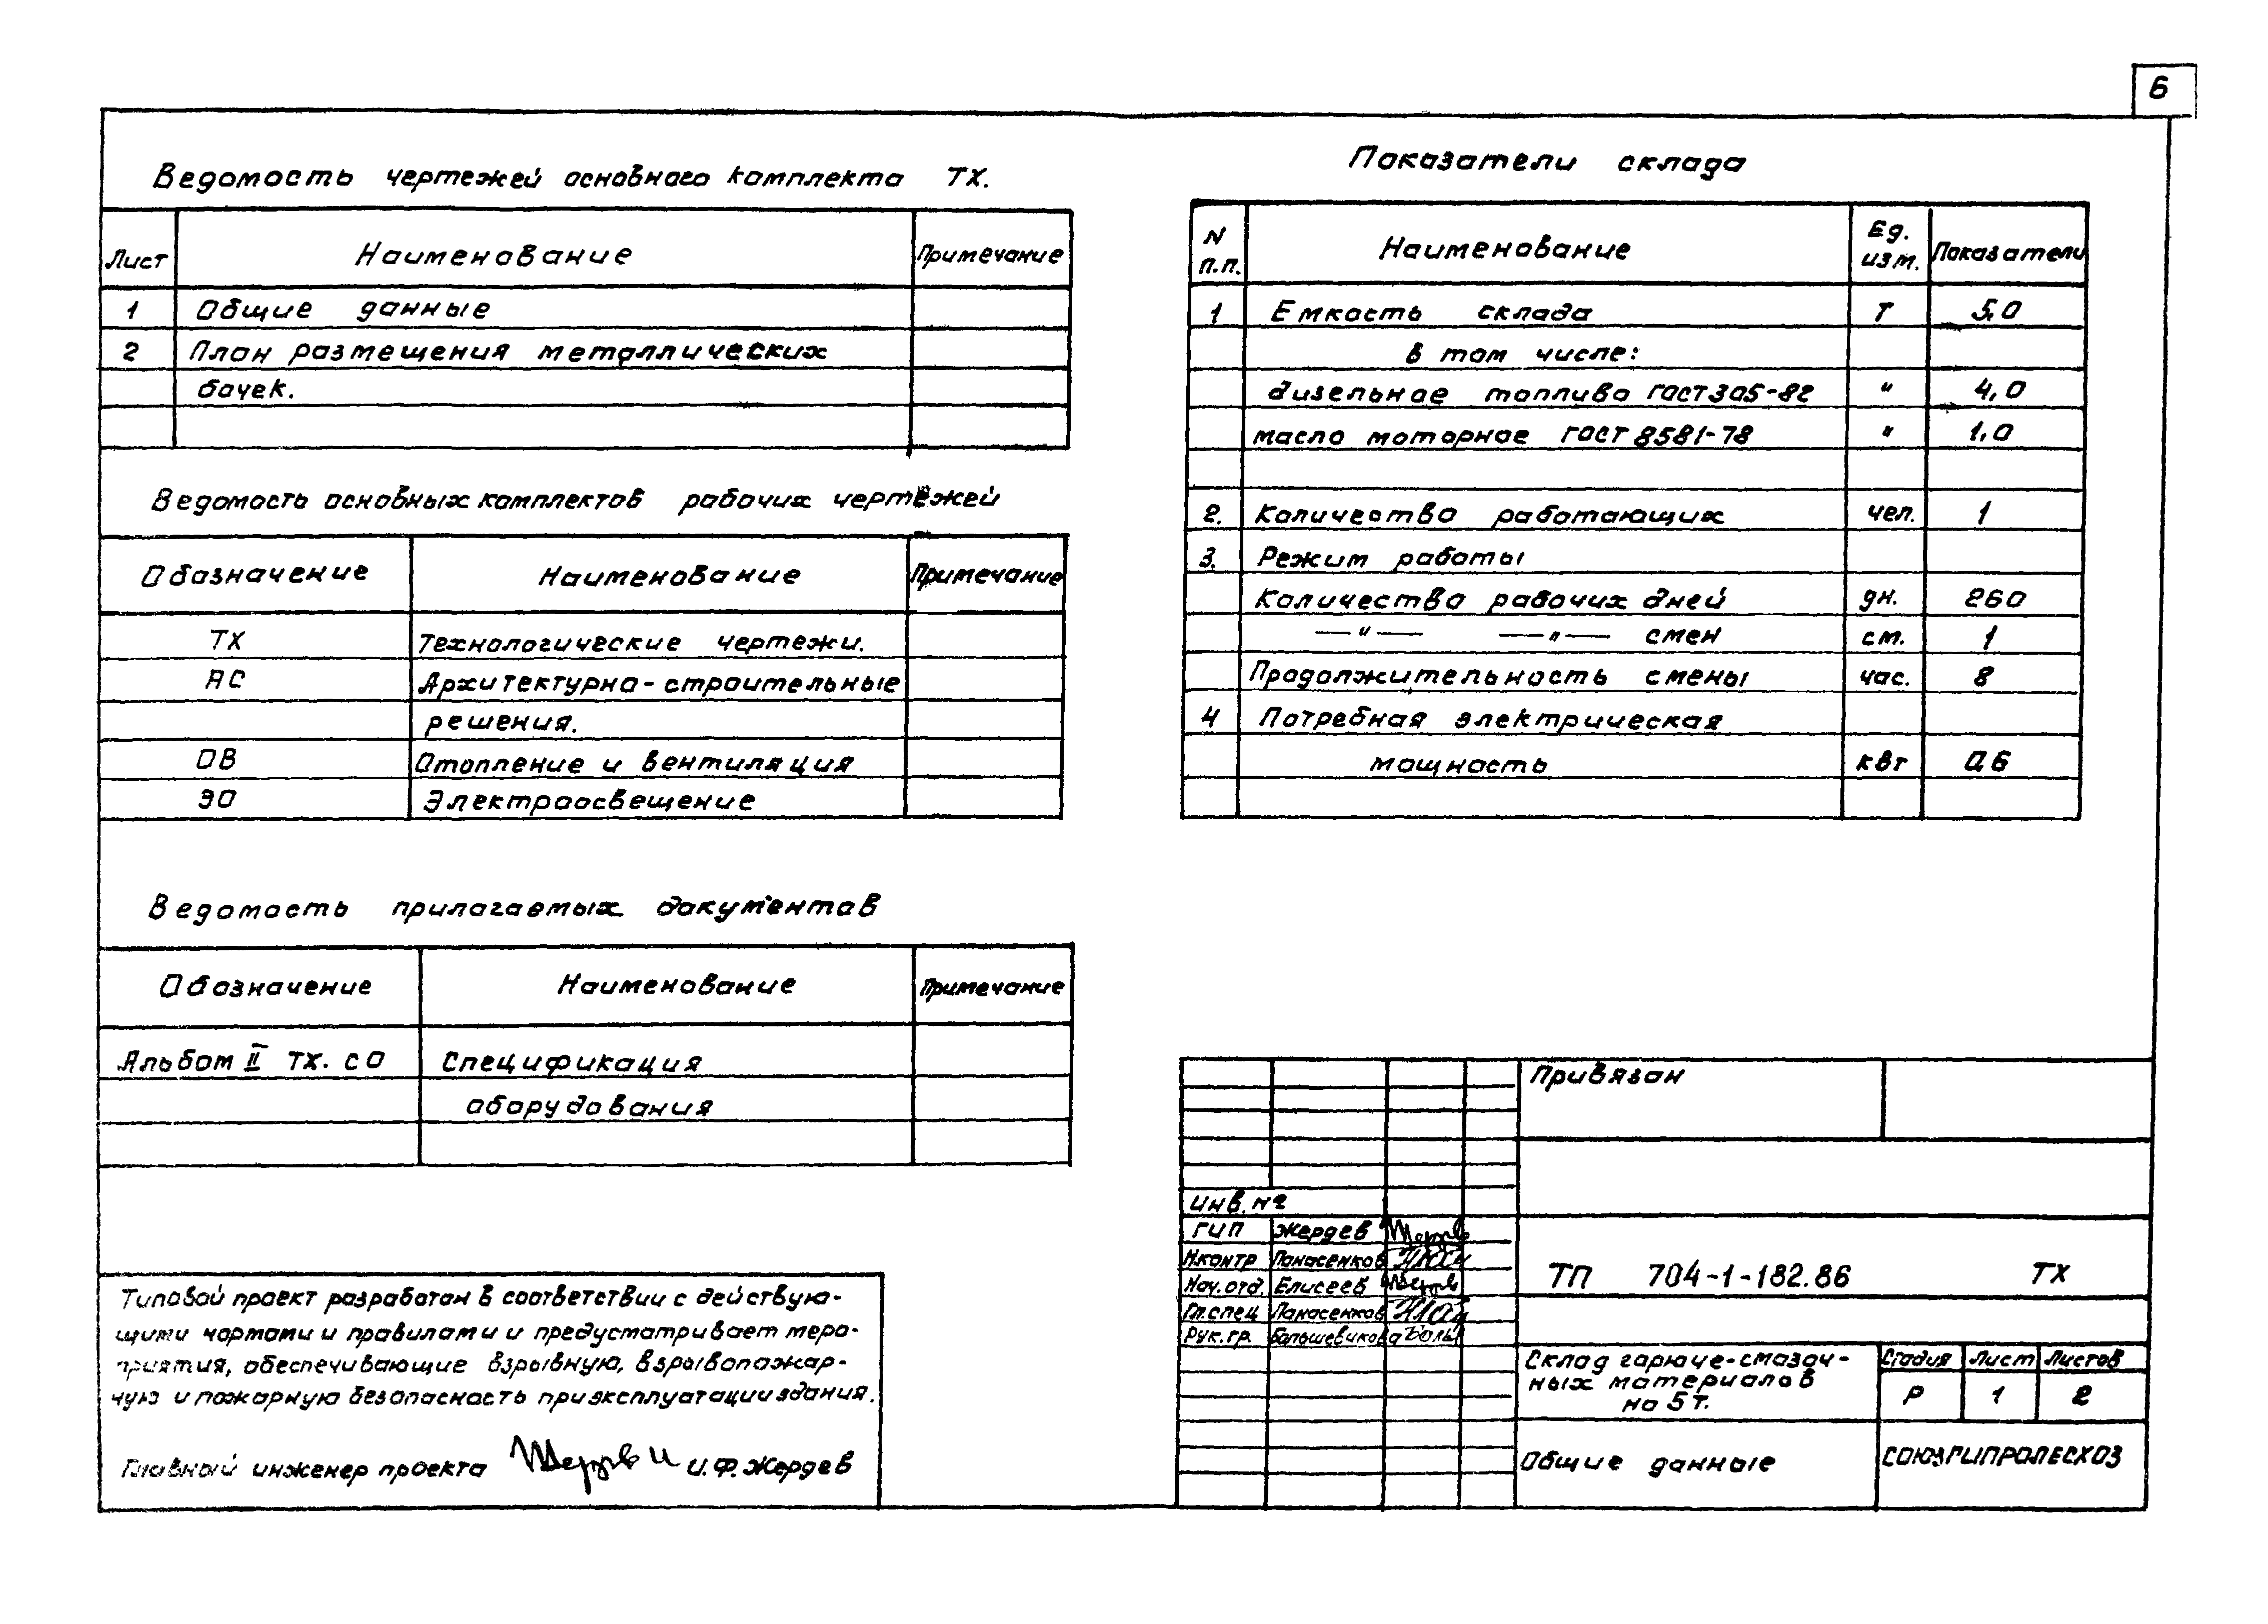 6
Ведомость чертежей основного комплекта ТХ.
Лист Наименование Примечание
1 Общие данные
2 План размещения металлических
бачек.
Ведомость основных комплектов рабочих чертежей
Обозначение Наименование Примечание
ТХ Технологические чертежи.
АС Архитектурно-строительные
решения.
ОВ Отопление и вентиляция
ЭО Электроосвещение
Ведомость прилагаемых документов
Обозначение Наименование Примечание
Альбом II ТХ. СО Спецификация
оборудования
Типовой проект разработан в соответствии с действую-
щими нормами и правилами и предусматривает меро-
приятия, обеспечивающие взрывную, взрывопожар-
ную и пожарную безопасность при эксплуатации здания.
Главный инженер проекта И.Ф. Жердев
Показатели склада
N п.п. Наименование Ед. изм. Показатели
1 Емкость склада т 5,0
в том числе:
дизельное топливо ГОСТ 305-82 " 4,0
масло моторное ГОСТ 8581-78 " 1,0
2. Количество работающих чел. 1
3. Режим работы
Количество рабочих дней дн. 260
—"— —"— смен см. 1
Продолжительность смены час. 8
4 Потребная электрическая
мощность квт 0,6
Привязан
Инв. №
ГИП Жердев
Н.контр Панасенков
Нач.отд. Елисеев
Гл.спец Панасенков
Рук.гр. Большевикова
ТП 704-1-182.86 ТХ
Склад горюче-смазоч-
ных материалов
на 5 т.
Стадия Лист Листов
Р 1 2
Общие данные
СОЮЗГИПРОЛЕСХОЗ